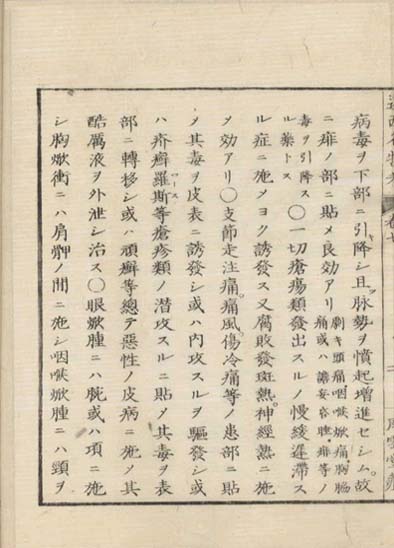 病毒ヲ下部ニ引降シ且ツ脉勢ヲ憤起増進セシム。故
ニ腓ノ部ニ貼メ良効アリ劇キ頭痛咽喉焮痛。胸膈
痛或ハ譫妄昏睡、腓等ノ
毒ヲ引降ス
ル藥トス〇一切瘡瘍類發出スルノ慢緩遲滯ス
ル症ニ施メヨク誘發ス又腐敗發斑熱。神經熱ニ施
メ効アリ〇支節走注痛。痛風。傷冷痛等ノ患部ニ貼
メ其毒ヲ皮表ニ誘發シ或ハ内攻スルヲ驅發シ或
ハ疥癬羅斯ロース等瘡疹類ノ潜攻スルニ貼メ其毒ヲ表
部ニ轉移シ或ハ頑癬等總テ惡性ノ皮病ニ施メ其
酷厲液ヲ外泄シ治ス〇眼焮腫ニハ腕或ハ項ニ施
シ胸焮衝ニハ肩胛ノ間ニ施シ咽喉焮腫ニハ頸ヲ